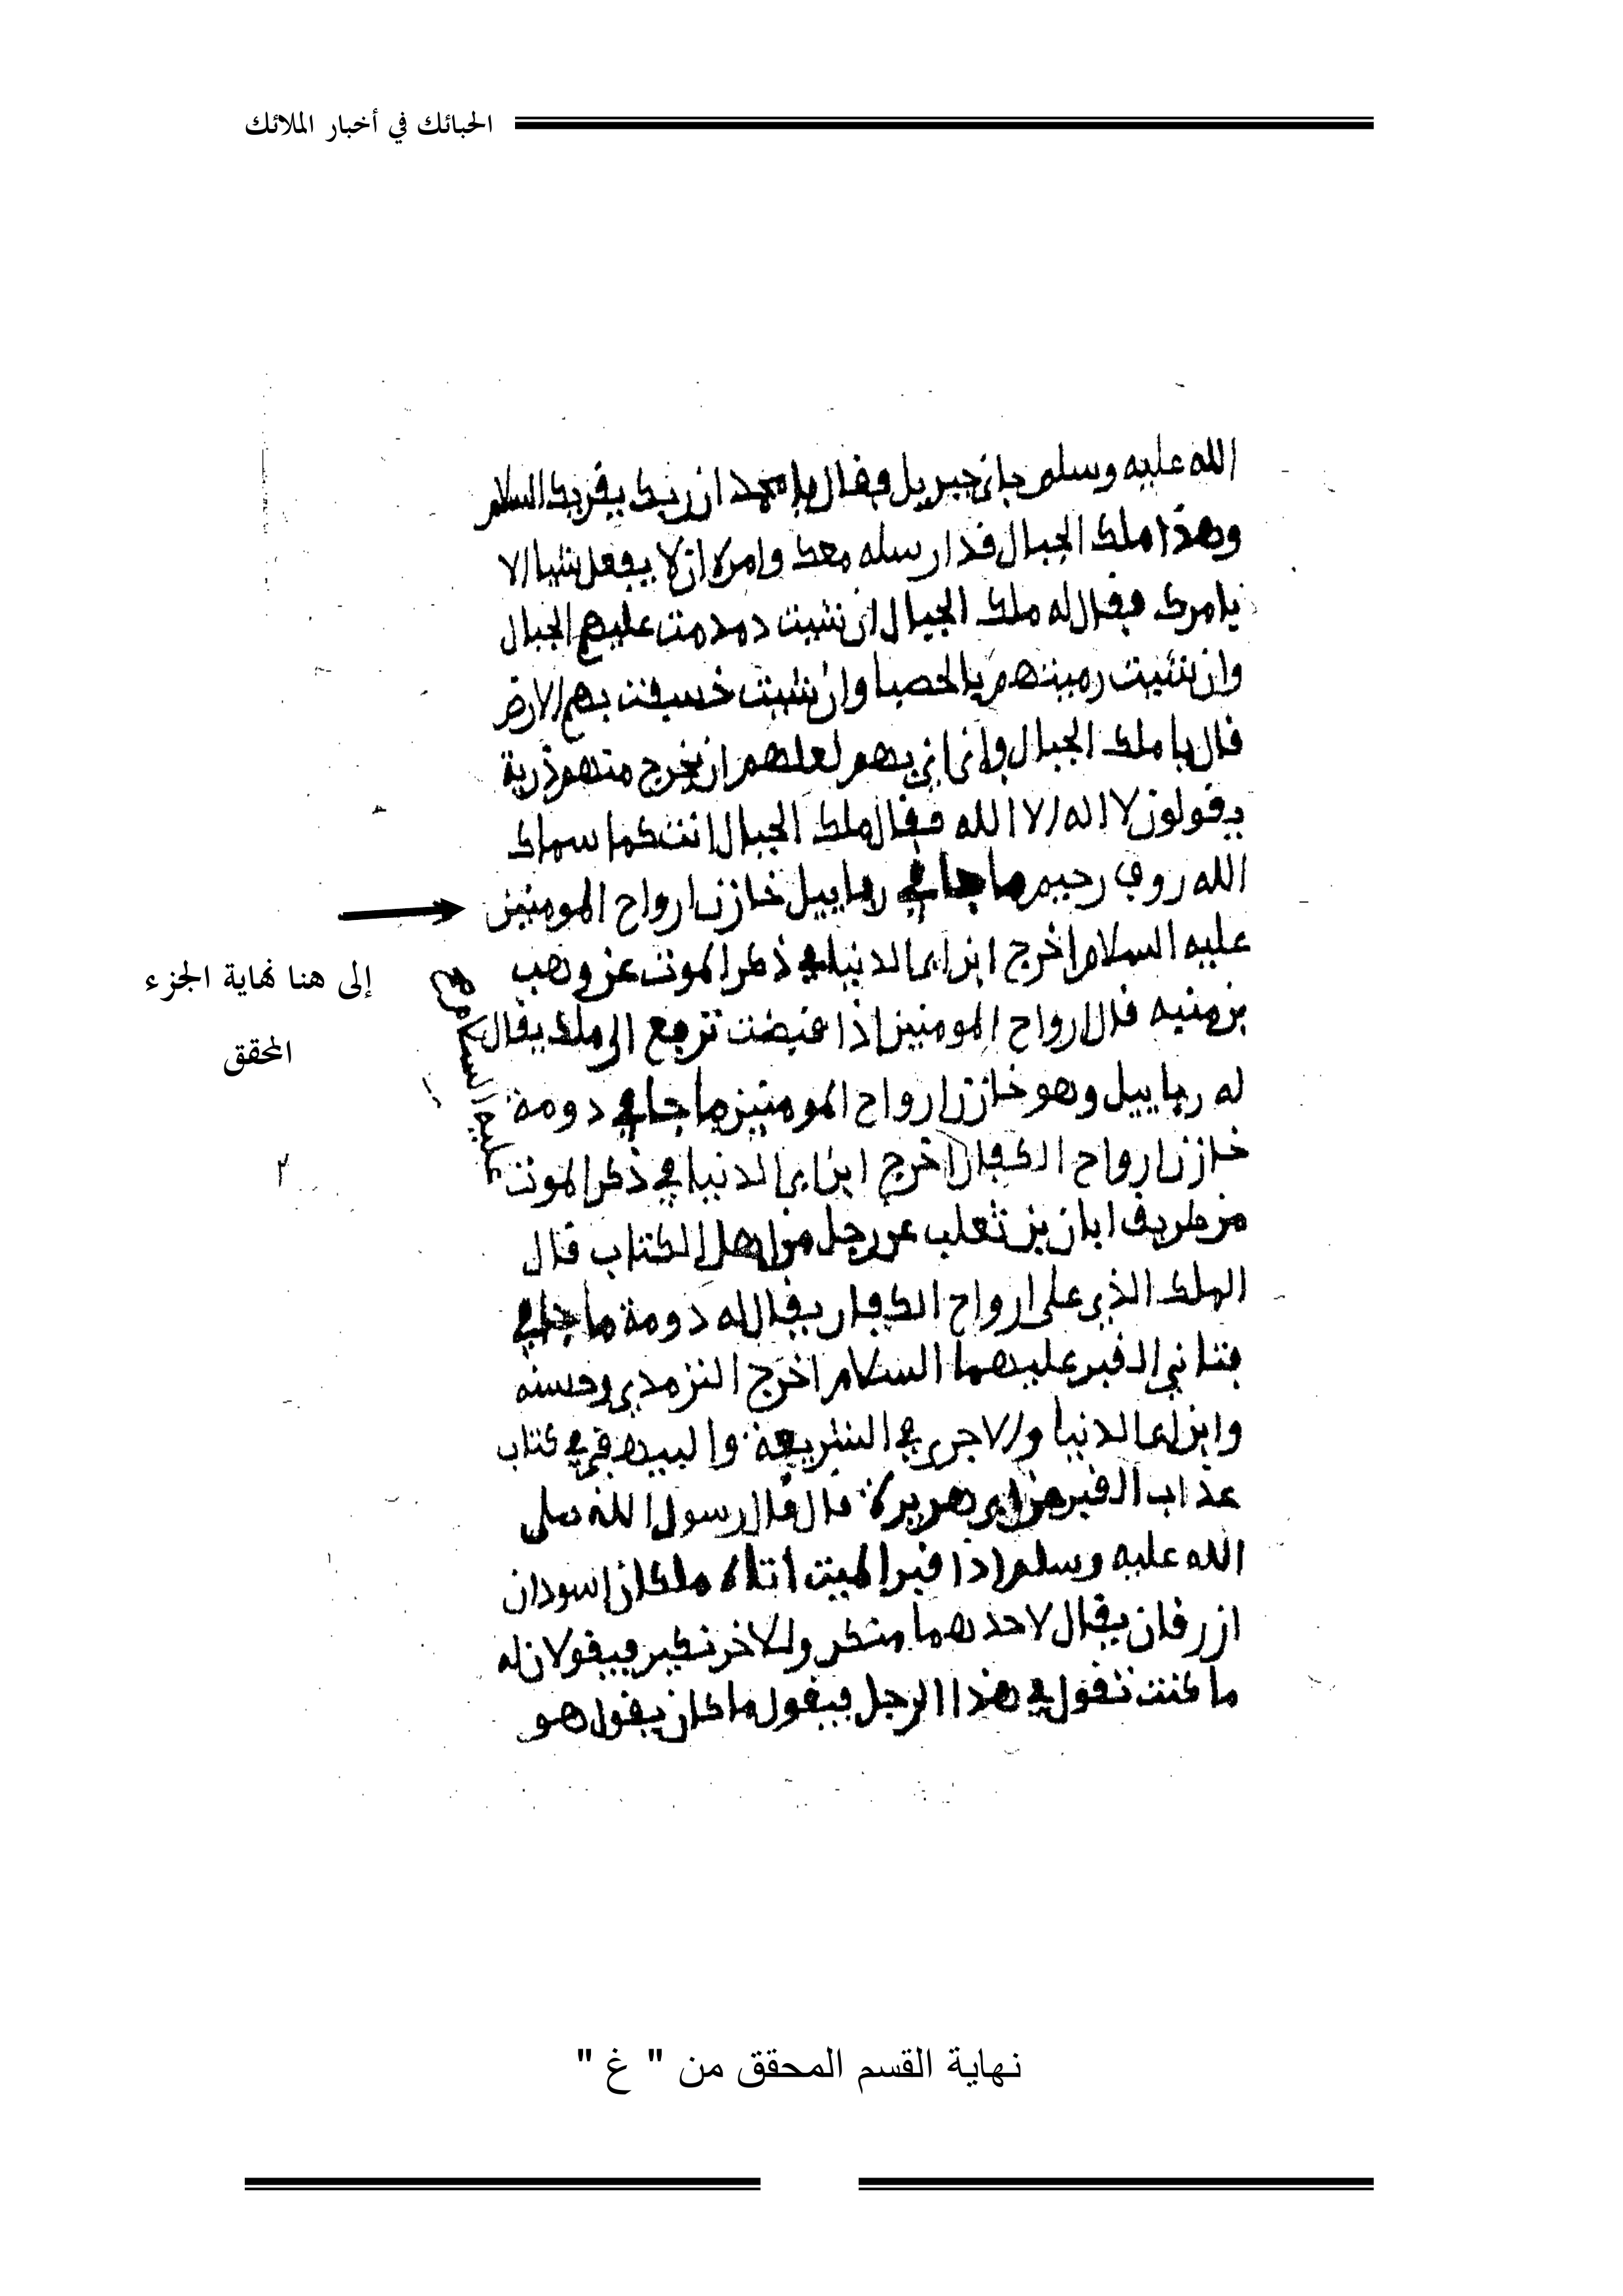 الحبائك في أخبار الملائك
الله عليه وسلم جانى جبريل فقال يا محمد ان ربك يقريك السلام
وهذا ملك الجبال قد ارسله معك وامره ان لا يفعل شيا الا
بامرك فقال له ملك الجبال ان شيت دمدمت عليهم الجبال
وان شيت رميتهم بالحصبا وان شيت خسفت بهم الارض
قال يا ملك الجبال وانى انى بهم لعلهم ان يخرج منهم ذرية
يقولون لا اله الا الله فقال ملك الجبال انت كما سماك
الله روف رحيم ما جا في رمابيل خازن ارواح المومنين
عليه السلام اخرج ابن ابى الدنيا في ذكر الموت عن وهب
بن منبه قال ارواح المومنين اذا قبضت ترفع الى ملك يقال
له رمابيل وهو خازن ارواح المومنين ما جا في دومة
عليه السلام صح
خازن ارواح الكفار اخرج ابن ابى الدنيا في ذكر الموت
من طريق ابان بن ثعلب عن رجل من اهل الكتاب قال
الملك الذى على ارواح الكفار يقال له دومة ما جا في
فتانى القبر عليهما السلام اخرج الترمذى وحسنه
وابن ابى الدنيا والاجرى في الشريعة والبيهقى في كتاب
عذاب القبر عن ابى هريرة قال قال رسول الله صلى
الله عليه وسلم اذا قبر الميت اتاه ملكان اسودان
ازرقان يقال لاحدهما منكر وللاخر نكير فيقولان له
ما كنت تقول في هذا الرجل فيقول ما كان يقول هو
إلى هنا نهاية الجزء
المحقق
نهاية القسم المحقق من " غ "